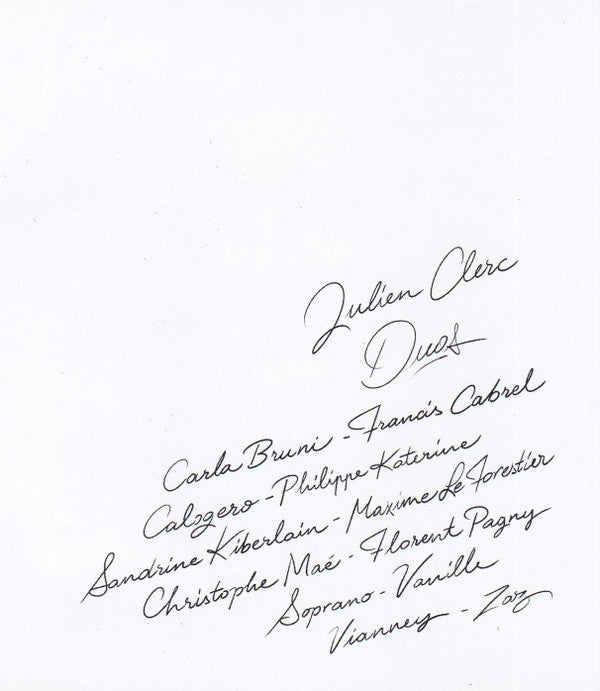 Julien Clerc
Duos
Carla Bruni - Francis Cabrel
Calogero - Philippe Katerine
Sandrine Kiberlain - Maxime Le Forestier
Christophe Maé - Florent Pagny
Soprano - Vanille
Vianney - Zaz